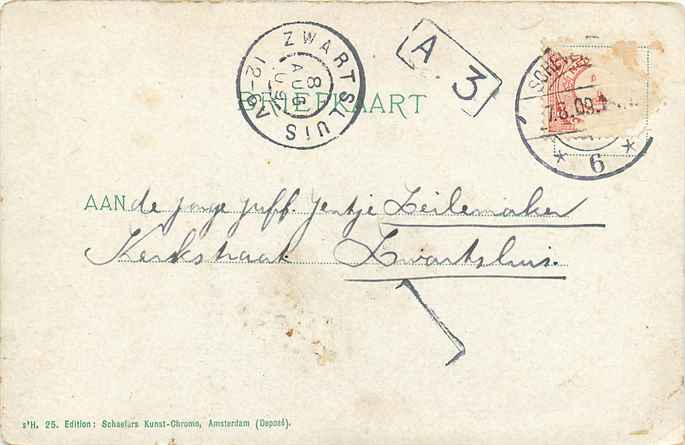 ZWARTSLUIS
8
AUG
09
12-6N
A 3
SCHEV
7.8.09.
6
BRIEFKAART
AAN de jonge juff. Jentje Zeilemaker
Kerkstraat Zwartsluis.
s'H. 25. Edition: Schaefers Kunst-Chromo, Amsterdam (Deposé).